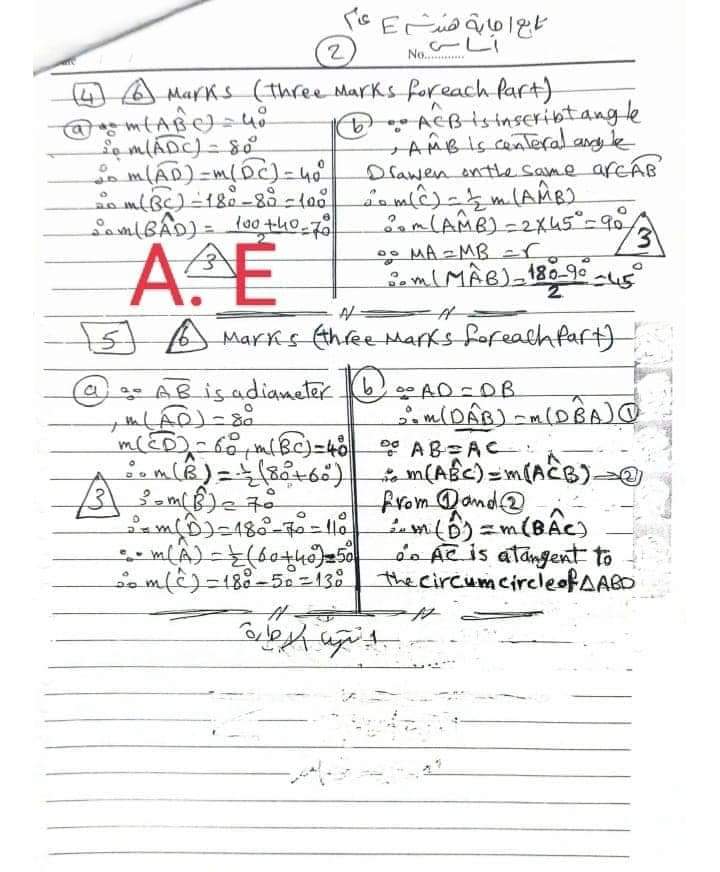 تابع إجابة هندسة E عام
أساسى
2
No.............
4 6 Marks (three Marks for each Part)
a ∵ m(AB̂C) = 40°
∴ m(ADC) = 80°
∴ m(AD) = m(DC) = 40°
∴ m(BC) = 180° - 80° = 100°
∴ m(BÂD) = (100 + 40)/2 = 70°
3
A. E
b ∵ AĈB is inscript angle
, AM̂B is centeral angle
Drawen on the same arc AB
∴ m(Ĉ) = ½ m(AM̂B)
∴ m(AM̂B) = 2 x 45° = 90°
3
∵ MA = MB = r
∴ m(MÂB) = (180° - 90°)/2 = 45°
5 6 Marks (three Marks for each Part)
a ∵ AB is a diameter
, m(AD) = 80°
m(CD) = 60°, m(BC) = 40°
∴ m(B̂) = ½ (80° + 60°)
3 ∴ m(B̂) = 70°
∴ m(D̂) = 180° - 70° = 110°
∵ m(Â) = ½ (60 + 40°) = 50°
∴ m(Ĉ) = 180° - 50° = 130°
b ∵ AD = DB
∴ m(DÂB) = m(DB̂A) ①
∵ AB = AC
∴ m(AB̂C) = m(AĈB) → ②
from ① and ②
∴ m(D̂) = m(BÂC)
∴ AC is a tangent to
the circumcircle of △ABD
انتهت الإجابة